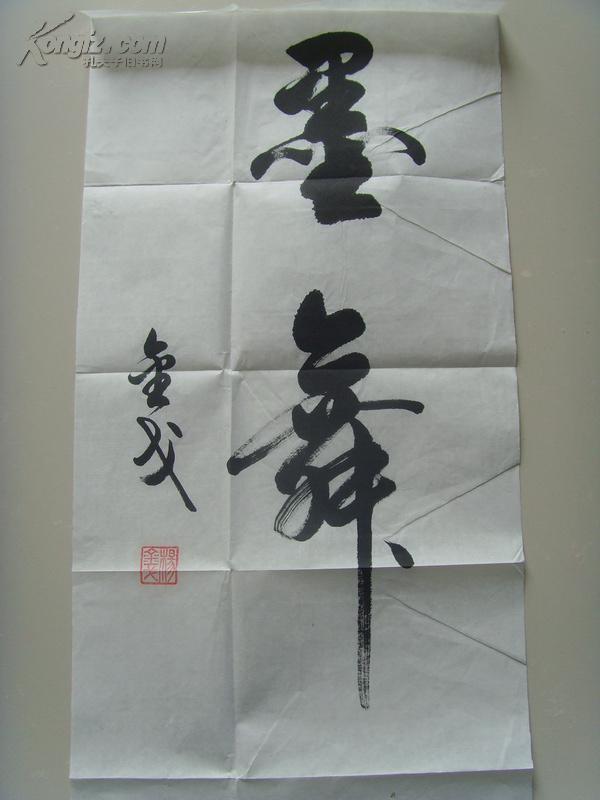 Kongfz.com
孔夫子旧书网
墨舞
金戈